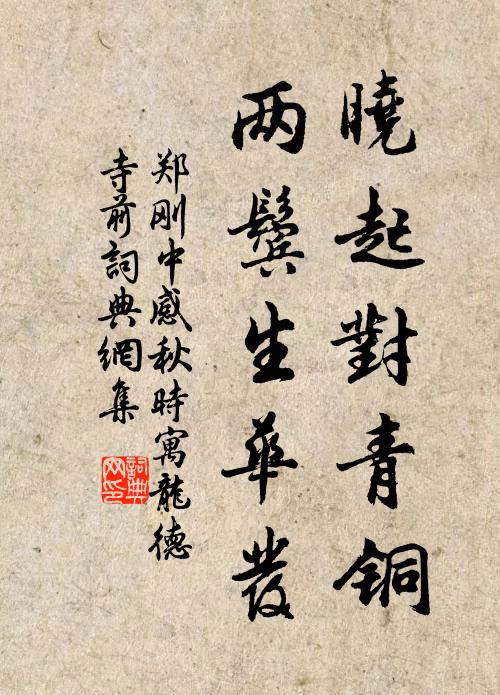 曉起對青铜
两鬓生華发
郑刚中感秋時寓龍德
寺前詞典網集
詞典网印